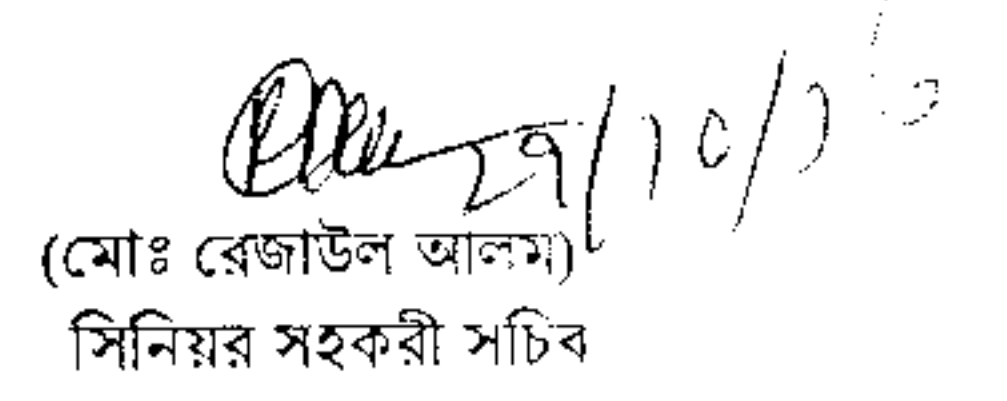 ২৭/১০/১৬
(মোঃ রেজাউল আলম)
সিনিয়র সহকরী সচিব